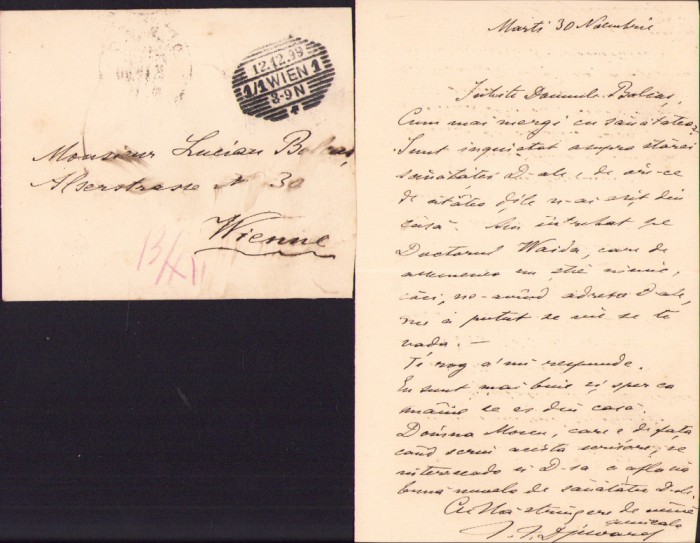 12.12.99
1/1 WIEN 1
8-9 N
Monsieur Lucian Bolcaș
Alserstrasse N 30
Wienne
13/XII
Marti 30 Noembrie
Iubite Domnule Bolcaș,
Cum mai mergi cu sănătatea.
Sunt inquietat asupra stărei
sănătăței D-ale, de
de atâtea dile n-ai eșit din
casă. Am întrebat pe
Doctorul Waida, care de
asemenea nu știe nimic,
căci, ne-având adresa D-ale,
nu a putut se vie se te
vadă. —
Te rog a'mi respunde.
Eu sunt mai bine și sper ca
mâine se es din casă.
Domna care e de față
când scriu acesta scrisore, se
intereseado și D-sa a afla
bune nuvele de sănătatea D-le.
Cu strângere de mână
amicale
Djuvara